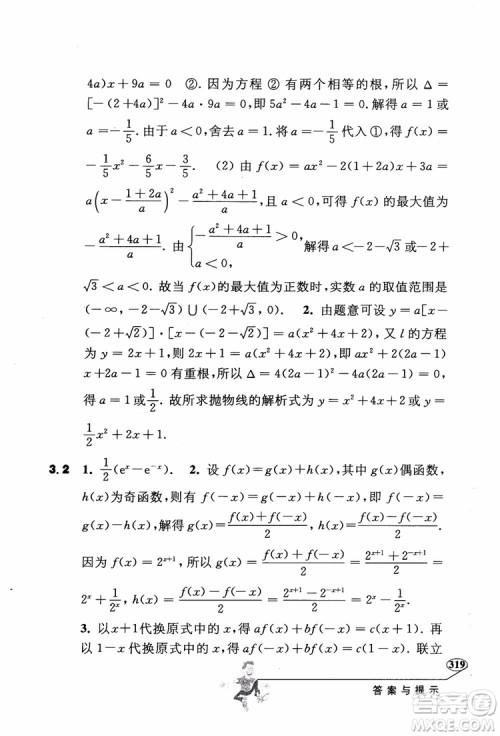 4a)x+9a=0 ②. 因为方程 ② 有两个相等的根，所以 Δ=
[-(2+4a)]²-4a·9a=0，即 5a²-4a-1=0. 解得 a=1 或
a=-1/5. 由于 a<0，舍去 a=1. 以 a=-1/5 代入 ①，得 f(x)=
-1/5x²-6/5x-3/5. (2) 由 f(x)=ax²-2(1+2a)x+3a=
a(x-(1+2a)/a)²-(a²+4a+1)/a 及 a<0，可得 f(x) 的最大值为
-(a²+4a+1)/a. 由{-(a²+4a+1)/a>0, a<0, 解得 a<-2-√3 或 -2+
√3<a<0. 故当 f(x) 的最大值为正数时，实数 a 的取值范围是
(-∞，-2-√3)∪(-2+√3，0). 2. 由题意可设 y=a[x-
(-2-√2)]·[x-(-2+√2)]=a(x²+4x+2)，又 l 的方程
为 y=x+1，联立得 ax²+(4a-1)x+(2a-1)=0，即 ax²+(4a-
1)x+(2a-1)=0 有重根，Δ=4(2a-1)²-4a(2a-1)=0，a=
1/2 或 a=1/2. 故所求抛物线的解析式为 y=x²+4x+2 或 y=
1/2x²+2x+1.
3.2 1. 1/2(eˣ-e⁻ˣ). 2. 设 f(x)=g(x)+h(x)，其中 g(x)偶函数，
h(x)为奇函数，则 f(-x)=g(-x)+h(-x)，所以 f(-x)=
g(x)-h(x)，解得 g(x)=(f(x)+f(-x))/2，h(x)=(f(x)-f(-x))/2.
因为 f(x)=2ˣ⁺¹ 所以，g(x)=(f(x)+f(-x))/2=(2ˣ⁺¹+2⁻ˣ⁺¹)/2=
2ˣ+1/2ˣ，h(x)=(f(x)-f(-x))/2=(2ˣ⁺¹-2⁻ˣ⁺¹)/2=2ˣ-1/2ˣ.
3. 以 x+1代换原式中的 x，得 af(x)+f(-x)=c(x+1). 再
以 1-x 代换原式中的 x，得 af(-x)+f(x)=c(1-x). 联立
319
答案与提示
答案圈
MXQE.COM